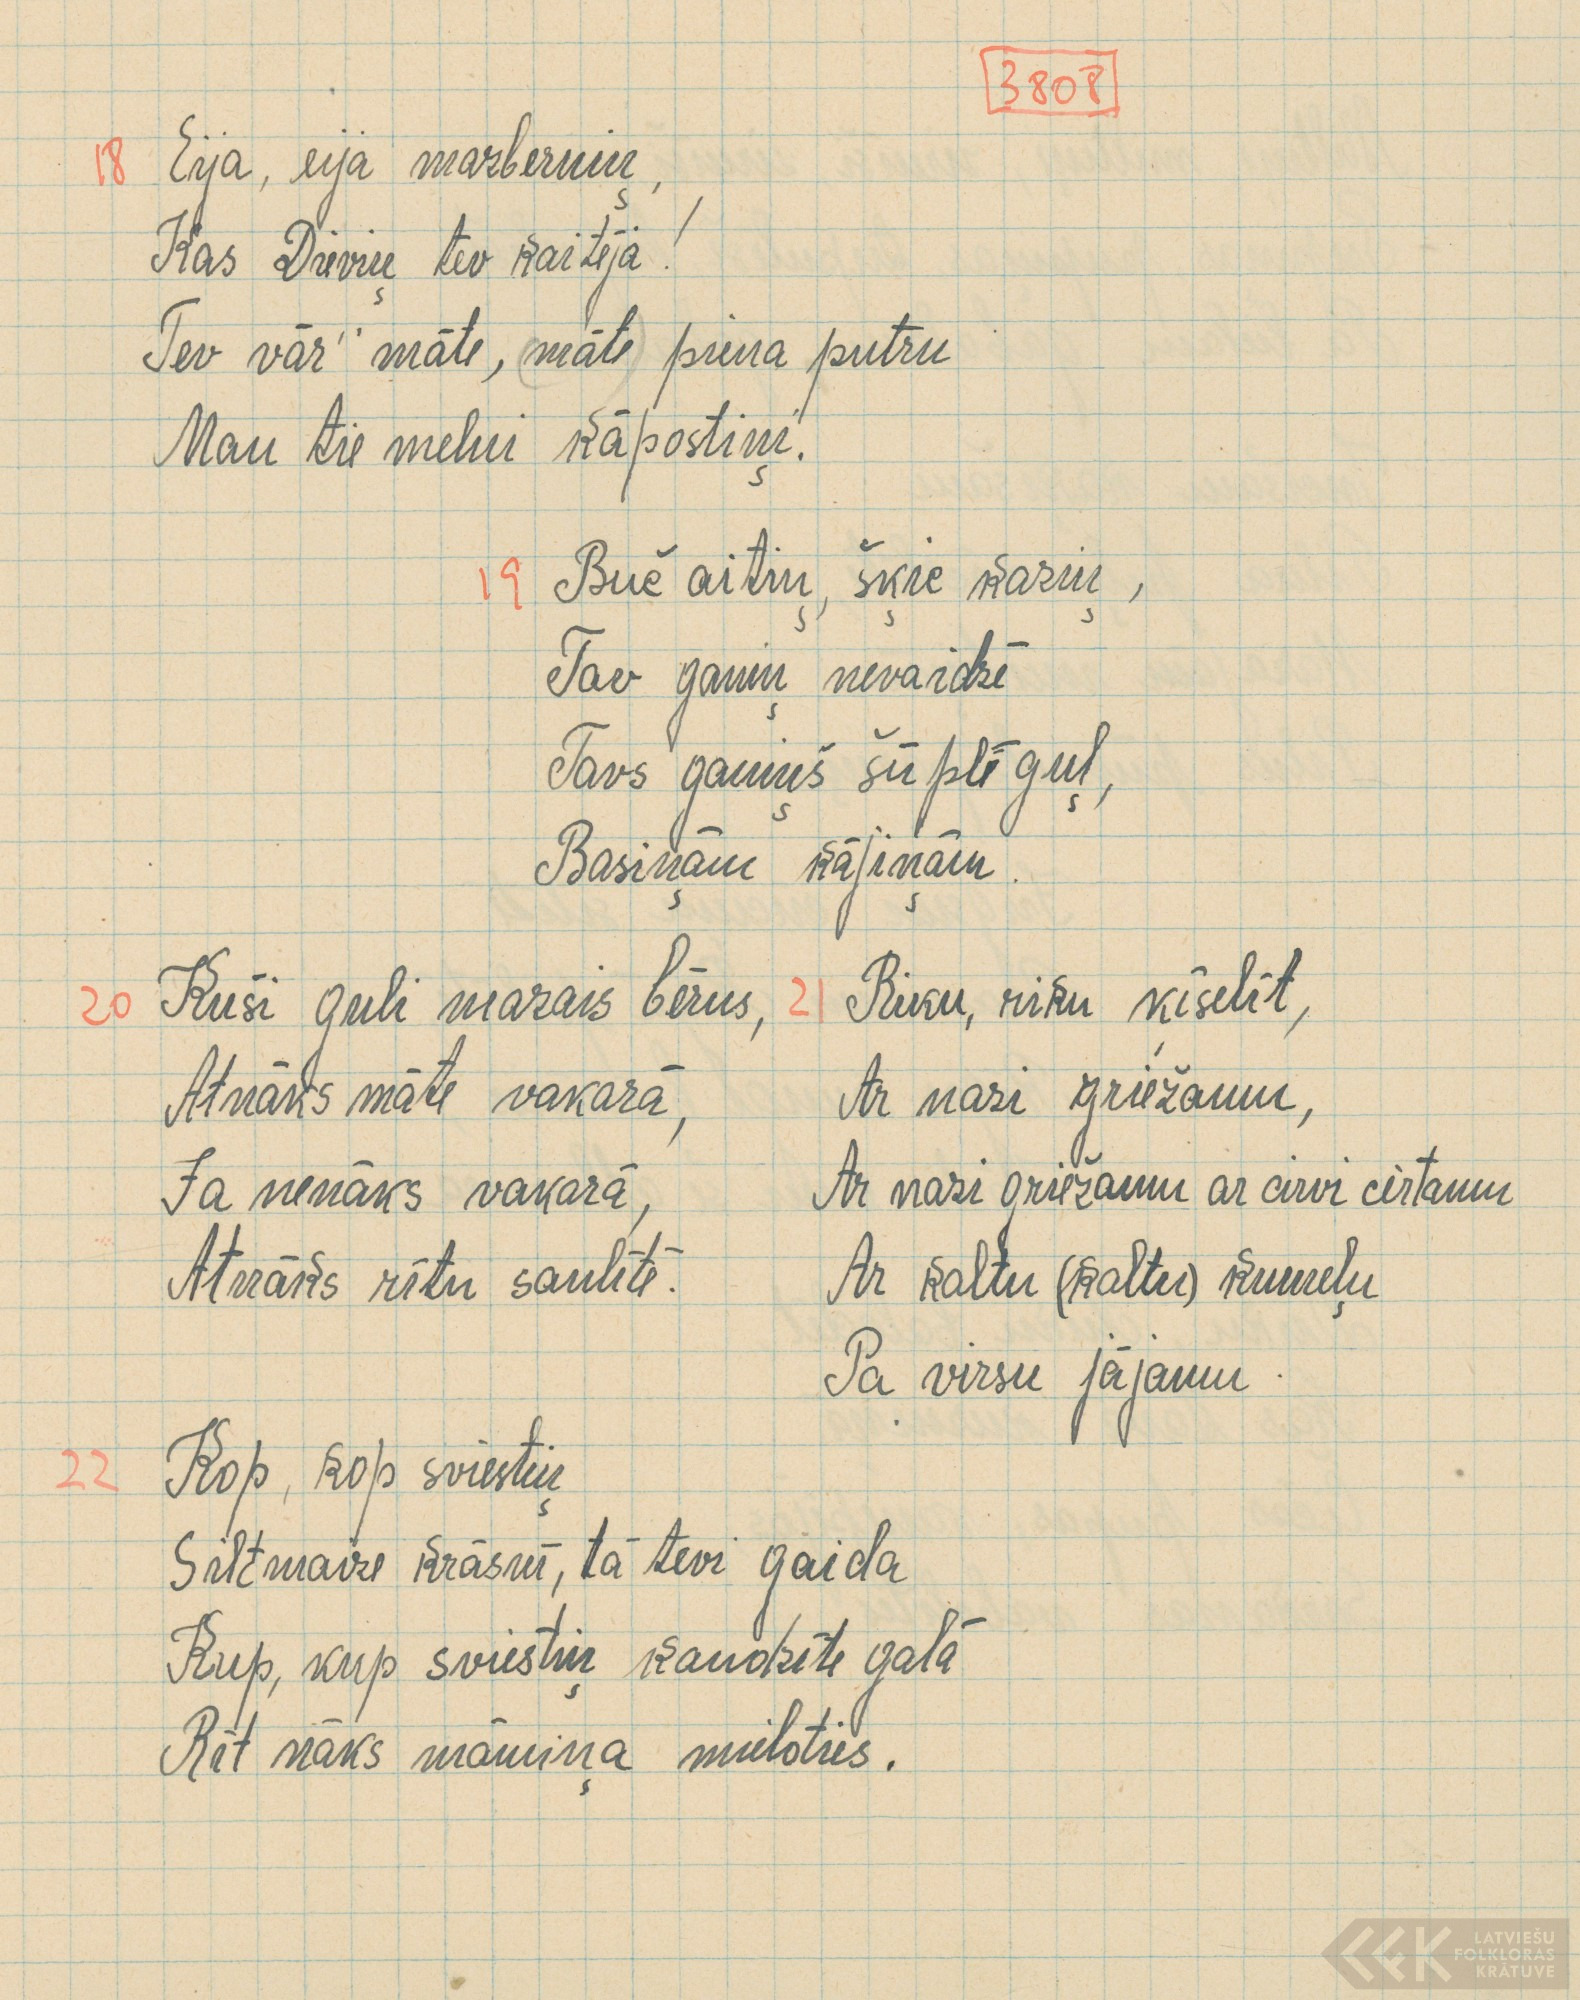 3808
18 Eija, eija mazberniņ,
Kas Dieviņ tev kaitēja!
Tev vār' māte, (māte) piena putru
Man tie melni kāpostiņ'.
19 Buč aitiņ, šķie kaziņ,
Tav ganiņ nevaidzē
Tavs ganiņš šūplē guļ,
Basiņām kājiņām.
20 Kuši guli mazais bērns,
Atnāks māte vakarā,
Ja nenāks vakarā,
Atnāks rītu saulītē.
21 Riku, riku ķīselīt,
Ar nazi griežamu,
Ar nazi griežamu ar cirvi cērtamu
Ar kaltu (kaltu) kumeļu
Pa virsu jājamu.
22 Kop, kop sviestiņ
Siltmaize krāsnī, tā tevi gaida
Kup, kup sviestiņ kaudzīte galā
Rīt nāks māmiņa mieloties.
LATVIEŠU
FOLKLORAS
KRĀTUVE